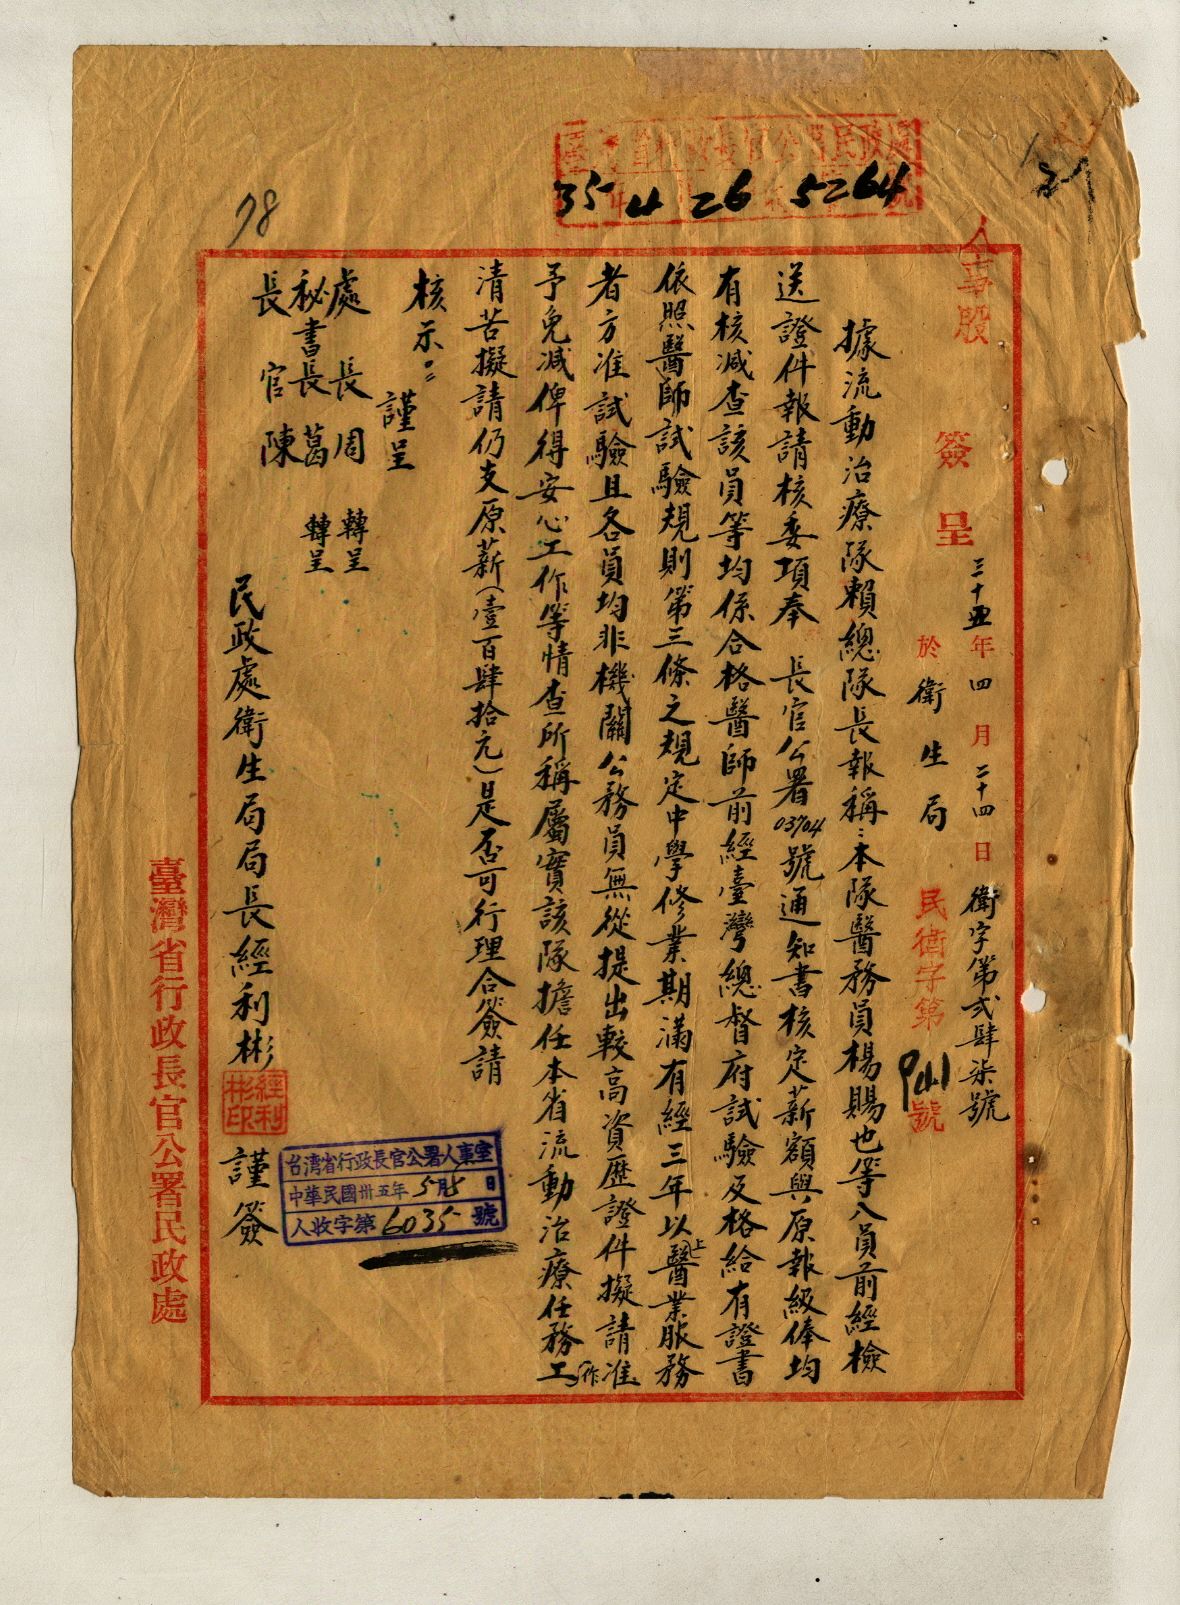 35 4 26 5264
78
人事股
簽呈
三十五年四月二十四日 衛字第貳肆柒號
於衛生局 民衛字第941號
據流動治療隊賴總隊長報稱：本隊醫務員楊賜也等八員前經檢
送證件報請核委項奉 長官公署03704號通知書核定薪額與原報級俸均
有核減查該員等均係合格醫師前經臺灣總督府試驗及格給有證書
依照醫師試驗規則第三條之規定中學修業期滿有經三年以上醫業服務
者方准試驗且各員均非機關公務員無從提出較高資歷證件擬請准
予免減俾得安心工作等情查所稱屬實該隊擔任本省流動治療任務工作
清苦擬請仍支原薪（壹百肆拾元）是否可行理合簽請
核示：
謹呈
處長周 轉呈
秘書長葛 轉呈
長官陳
民政處衛生局局長經利彬 謹簽
經利彬印
台湾省行政長官公署人事室
中華民國卅五年5月 日
人收字第6035號
臺灣省行政長官公署民政處